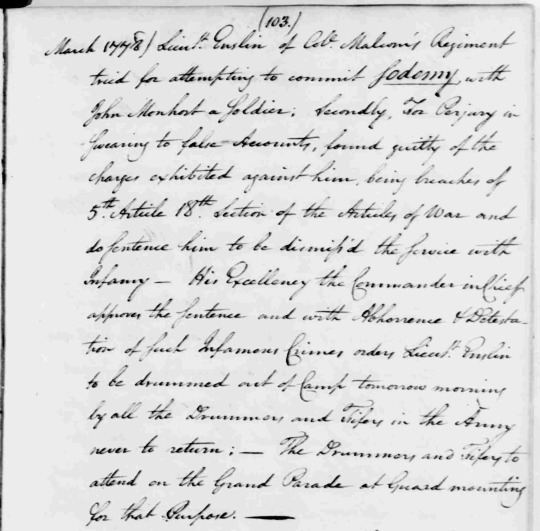 (103.)
March 1778) Lieut.t Enslin of Col.o Malcom's Regiment
tried for attempting to commit sodomy, with
John Monhort a Soldier; Secondly, For Perjury in
swearing to false Accounts, found guilty of the
charges exhibited against him, being breaches of
5th. Article 18th. Section of the Articles of War and
do sentence him to be dismiss'd the Service with
Infamy — His Excellency the Commander in Chief
approves the sentence and with Abhorrence & Detesta-
tion of such Infamous Crimes orders Lieut.t Enslin
to be drummed out of Camp tomorrow morning
by all the Drummers and Fifers in the Army
never to return; — The Drummers and Fifers to
attend on the Grand Parade at Guard mounting
for that Purpose. —